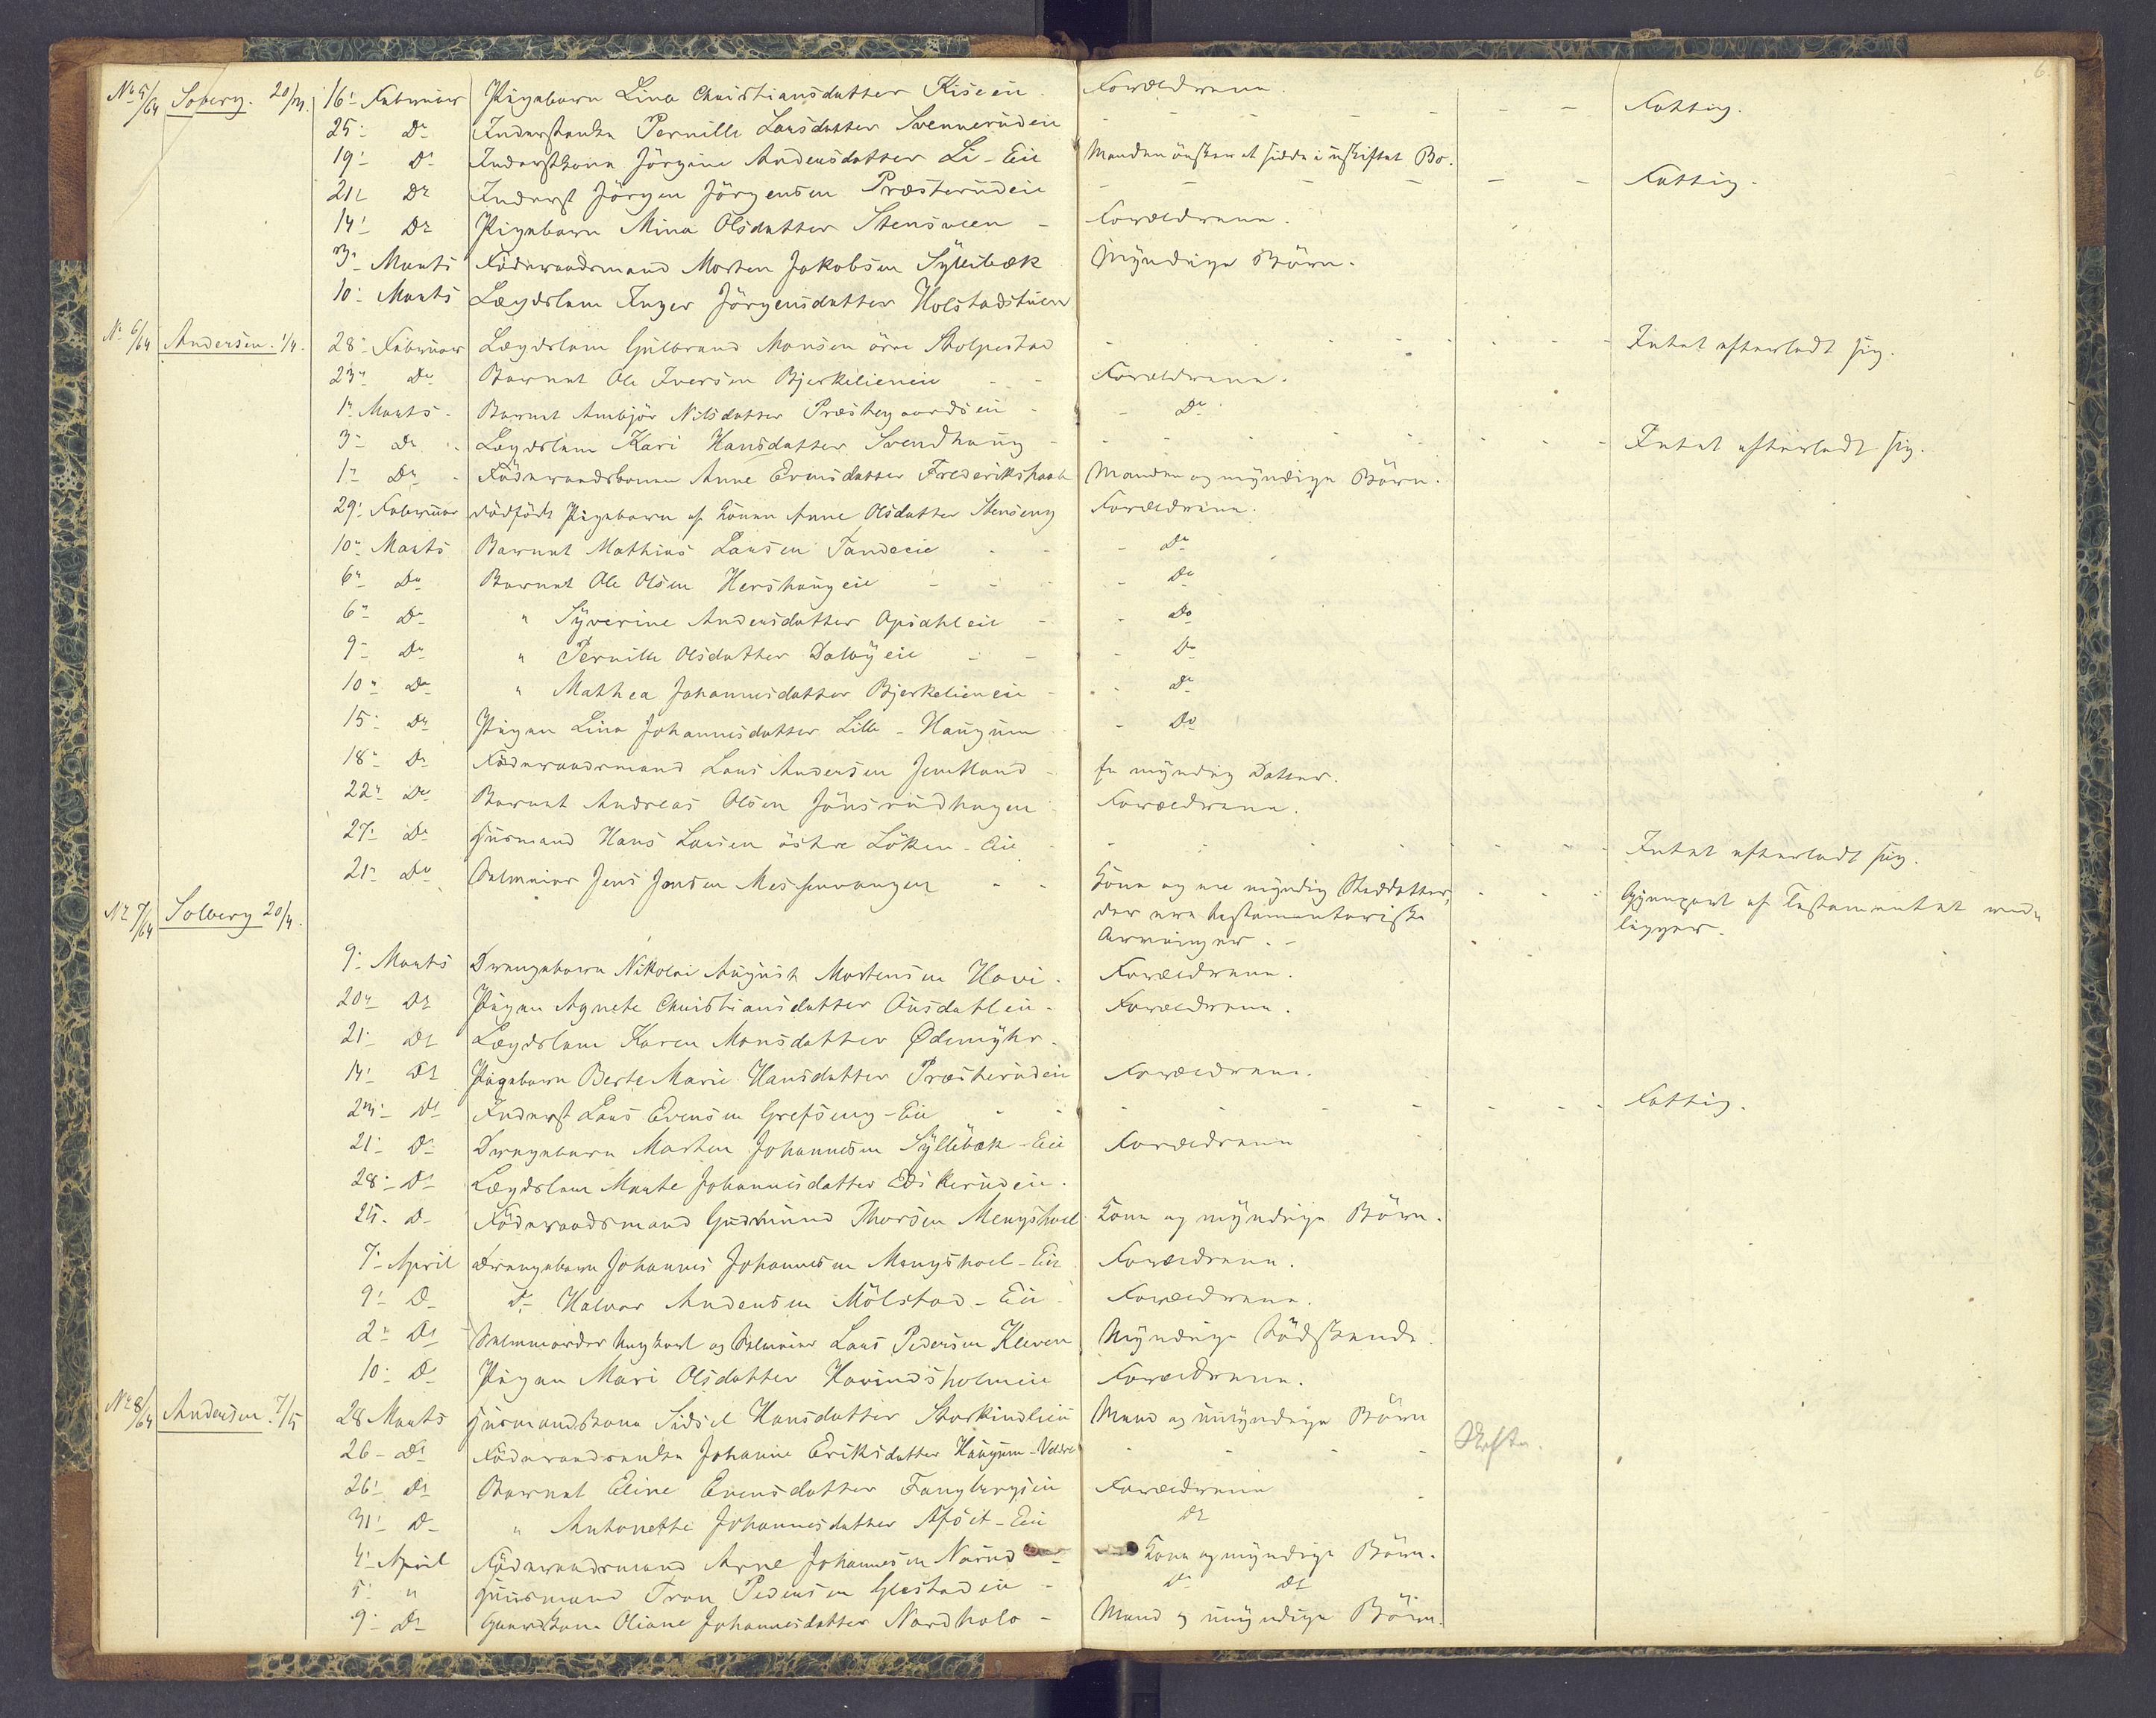 6.
No 5/64 Solberg. 20/3. 16' Februar Pigebarn Lina Christiansdatter Kiseeie Forældrene.
25- Do Inderstenke Pernille Larsdatter Svennerudeie - - - - - - Fattig.
19- Do Inderstkone Jörgine Andersdatter Li-Eie Manden önsker at sidde i uskiftet Bo.
21- Do Inderst Jörgen Jörgensen Præsterudeie - - - - - - Fattig.
14- Do Pigebarn Mina Olsdatter Stensveen - Forældrene.
3- Marts Föderaadsmand Morten Jakobsen Syllibæk Myndige Börn.
10- Marts Lægdslem Inger Jörgensdatter Holstadstuen
No 6/64 Andersen. 1/4. 28- Februar Lægdslem Gulbrand Monsen övre Skolpestad - - - - - Intet efterladt sig.
23- Do Barnet Ole Iversen Bjerkelieneie - - Forældrene.
1- Marts - Barnet Ambjör Nilsdatter Præstegaardseie - - Do
3- Do - Lægdslem Kari Hansdatter Svendhaug - - - - - - Intet efterladt sig.
1- Do - Föderaadskonen Anne Evensdatter Frederikshaab Manden og myndige Börn.
29- Februar dödfödt Pigebarn af Konen Anne Olsdatter Stenseng Forældrene.
10- Marts Barnet Mathias Larsen Tandeeie - - Do
6- Do Barnet Ole Olsen Hershaugeie - - - Do
6- Do " Syverine Andersdatter Opsahleie - - Do
9- Do " Pernille Olsdatter Dalbyeie - - - Do
10- Do " Mathea Johannesdatter Bjerkelieneie - - Do
15- Do Pigen Lina Johannesdatter Lille-Haugum - - Do
18- Do Föderaadsmand Lars Andersen Jemtland - En myndig Datter.
22- Do Barnet Andreas Olsen Jönsrudhagen Forældrene.
27- Do Husmand Hans Larsen östre Löken-Eie - - - - - - Intet efterladt sig.
21- Do Selveier Jens Jensen Messenvangen - - Kone og en myndig Steddatter, - - - Gjenpart af Testamentet ved-
No 7/64 Solberg 20/4. der ere testamentariske ligger.
Arvinger. -
9- Marts Drengebarn Nikolai August Mortensen Hovi. Forældrene.
20- Do Pigen Agnete Christiansdatter Ausdahleie - Forældrene.
21- Do Lægdslem Karen Monsdatter Ödemyhr.
14- Do Pigebarn Berte Marie Hansdatter Præsterudeie Forældrene.
23- Do Inderst Lars Evensen Grefseng-Eie - - - - - - Fattig.
21- Do Drengebarn Morten Johannesen Syllibæk-Eie Forældrene
28- Do Lægdslem Marte Johannesdatter Eriksrudeie.
25- Do Föderaadsmand Gudmund Thorsen Mengshoel Kone og myndige Börn.
7- April Drengebarn Johannes Johannesen Mengshoel-Eie Forældrene.
9- Do Do Halvor Andersen Mölstad-Eie Forældrene.
2- Do og Selveier Lars Pedersen Kleven Myndige Södskende.
10- Do Pigen Mari Olsdatter Hovindsholmeie Forældrene.
No 8/64 Andersen. 7/5 28 Marts Husmandskone Sidsel Hansdatter Mand og umyndige Börn
26- Do Föderaadsenke Johanne Eriksdatter Haugum-Veldre - - - - Skifte.
26- Do Barnet Eline Evensdatter Fangbergseie Forældrene
31- Do " Antonette Johannesdatter Afseth-Eie Do
4- April Föderaadsmand Arne Johannesen Narud - Kone og myndige Börn.
5- " Husmand Tron Pedersen Gjestadeie - Do Do
9- Do Gaardkone Oliane Johannesdatter Nordhoto - Mand og umyndige Börn.